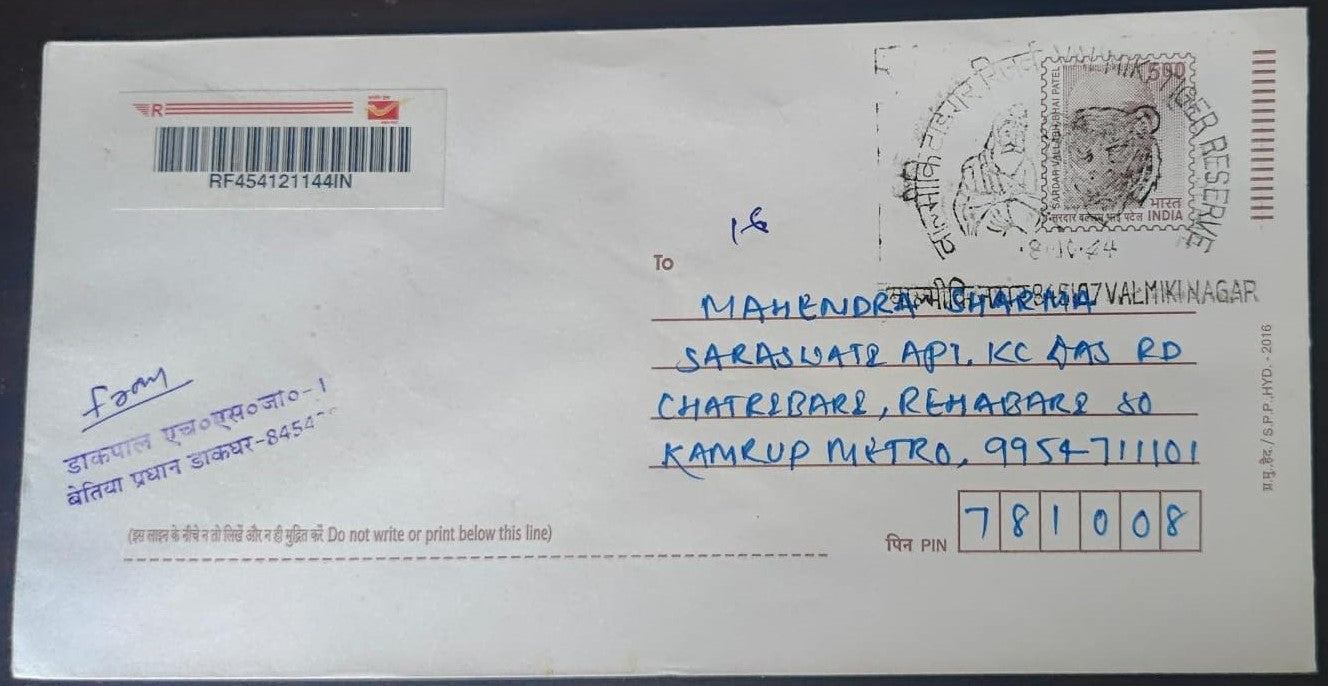 R
RF454121144IN
वाल्मीकि टाईगर रिजर्व VALMIKI TIGER RESERVE
500
SARDAR VALLABHBHAI PATEL
भारत
सरदार वल्लभ भाई पटेल INDIA
8-10-24
845107 VALMIKI NAGAR
16
To
MAHENDRA SHARMA
SARASWATI APT. KC DAS RD
CHATRIBARI, REHABARI SO
KAMRUP METRO, 9954711101
पिन PIN 781008
From
डाकपाल एच०एस०जा०-1
बेतिया प्रधान डाकघर-8454
(इस लाइन के नीचे न तो लिखें और न ही मुद्रित करें Do not write or print below this line)
प्र.मु.,हैद./S.P.P.,HYD. - 2016